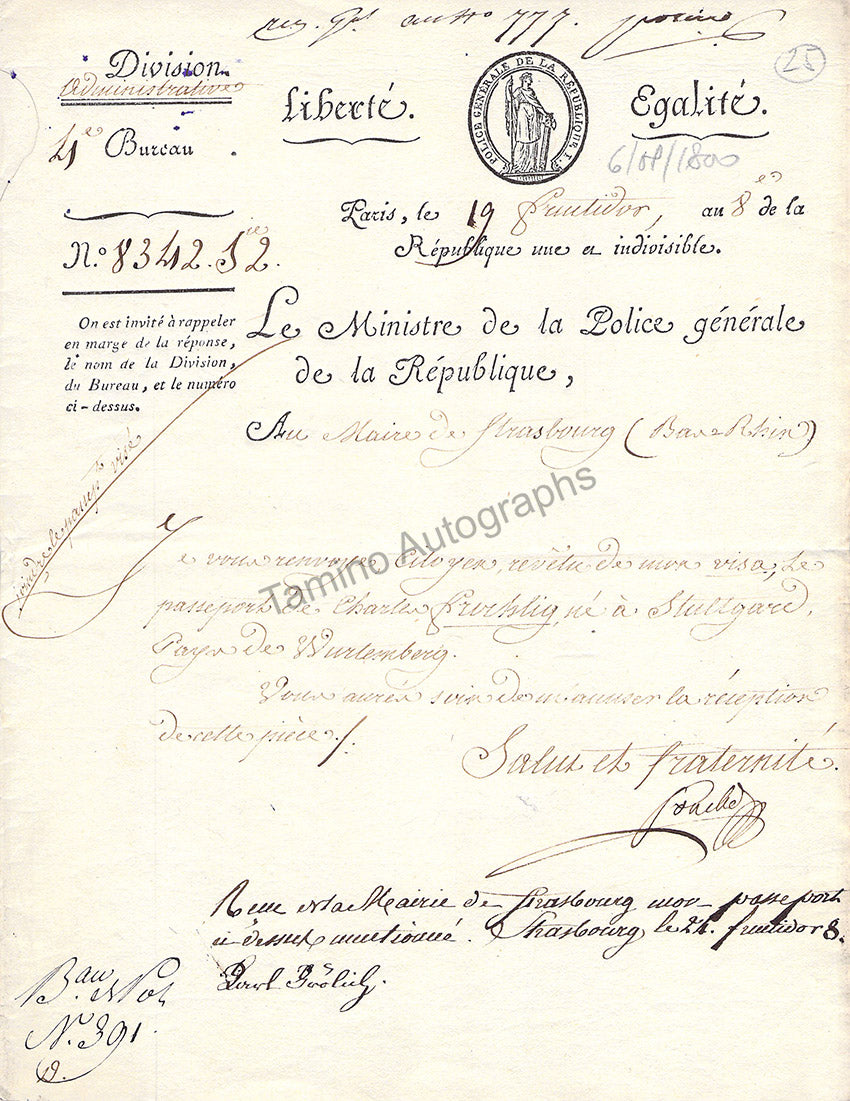 777.
25
Division
Administrative
4e Bureau.
Liberté.
POLICE GÉNÉRALE DE LA RÉPUBLIQUE
Egalité.
Paris, le 19 fructidor, an 8e de la
République une et indivisible.
N.o 8342. S2.
On est invité à rappeler
en marge de la réponse,
le nom de la Division,
du Bureau, et le numéro
ci-dessus.
Le Ministre de la Police générale
de la République,
Au Maire de Strasbourg (Bas-Rhin)
joindre le passept visé
Je vous renvoye Citoyen, revêtu de mon visa, le
passeport de Charles Froehlig, né à Stuttgard,
Pays de Wurtemberg.
Vous aurés soin de m'accuser la réception
de cette pièce ./.
Salut et fraternité.
Fouché
Tamino Autographs
Reçu de la Mairie de Strasbourg mon passeport
ci dessus mentionné. Strasbourg le 24. fructidor 8.
Karl Frölich.
Bau de Pol
N.o 391.